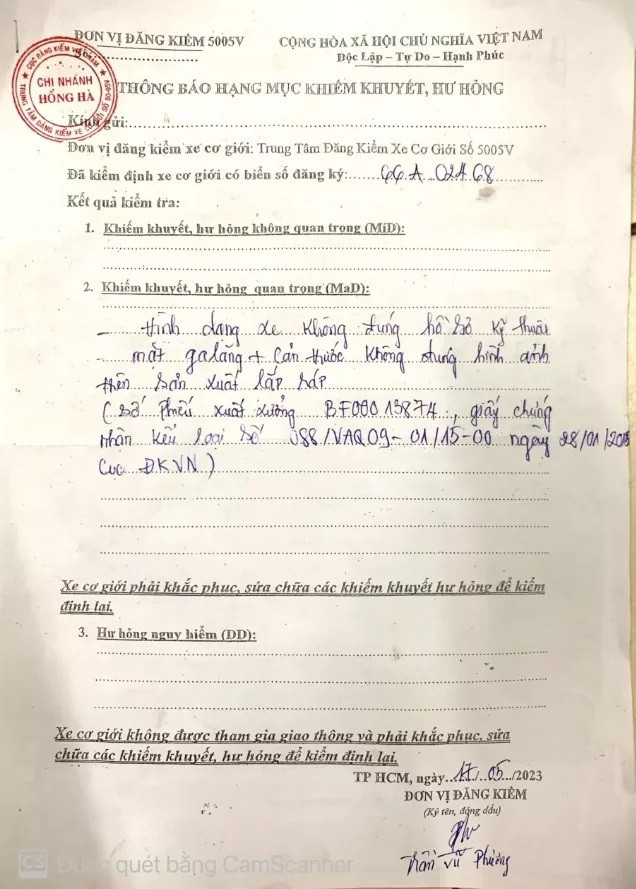 ĐƠN VỊ ĐĂNG KIỂM 5005V
CỘNG HÒA XÃ HỘI CHỦ NGHĨA VIỆT NAM
Số
Độc Lập – Tự Do – Hạnh Phúc
CỤC ĐĂNG KIỂM VIỆT NAM
CHI NHÁNH
HỒNG HÀ
TRUNG TÂM ĐĂNG KIỂM XE CƠ GIỚI SỐ 50-05V
THÔNG BÁO HẠNG MỤC KHIẾM KHUYẾT, HƯ HỎNG
Kính gửi:
Đơn vị đăng kiểm xe cơ giới: Trung Tâm Đăng Kiểm Xe Cơ Giới Số 5005V
Đã kiểm định xe cơ giới có biển số đăng ký: 66A.024.68
Kết quả kiểm tra:
1. Khiếm khuyết, hư hỏng không quan trọng (MiD):
2. Khiếm khuyết, hư hỏng quan trọng (MaD):
- Hình dạng xe không đúng hồ sơ kỹ thuật
mặt galăng + Cản trước không đúng hình ảnh
trên bản xuất lắp ráp
(Số Phiếu xuất xưởng BF000 13874, giấy chứng
nhận kểu loại số 088/VAQ09-01/15-00 ngày 28/01/2015
Cục ĐKVN)
Xe cơ giới phải khắc phục, sửa chữa các khiếm khuyết hư hỏng để kiểm
định lại.
3. Hư hỏng nguy hiểm (DD):
Xe cơ giới không được tham gia giao thông và phải khắc phục, sửa
chữa các khiếm khuyết, hư hỏng để kiểm định lại.
TP HCM, ngày 17/05/2023
ĐƠN VỊ ĐĂNG KIỂM
(Ký tên, đóng dấu)
Trần Vũ Phường
CS Được quét bằng CamScanner